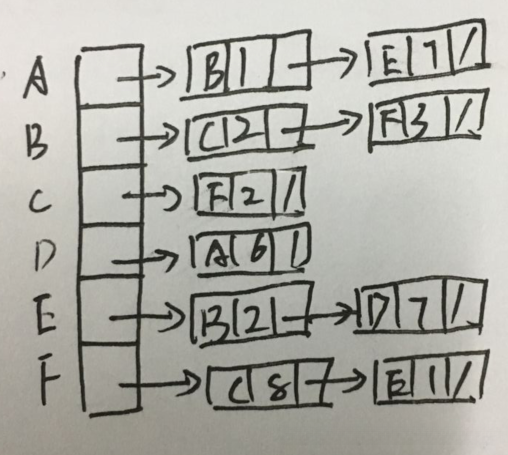 A B 1 E 7 /
B C 2 F 3 /
C F 2 /
D A 6 /
E B 2 D 7 /
F C 8 E 1 /